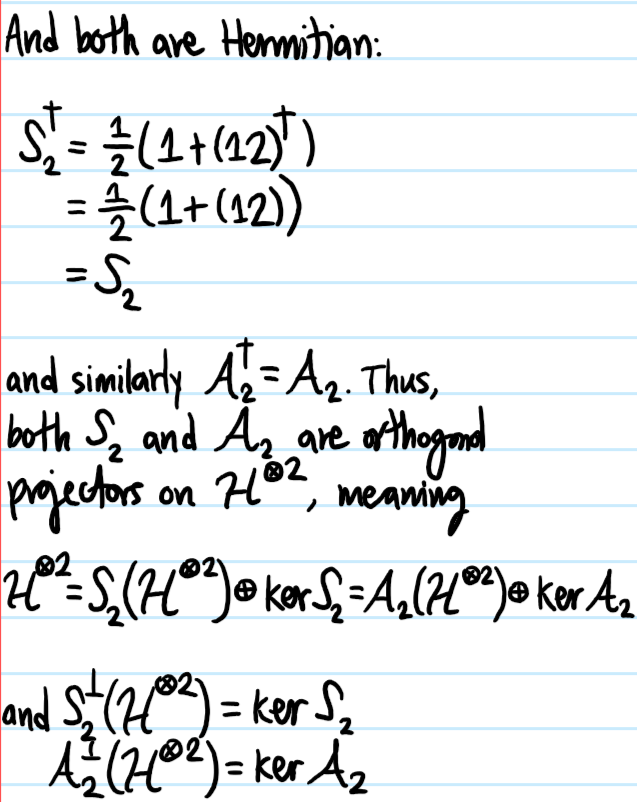 And both are Hermitian:
S₂† = ½(1+(12)†)
= ½(1+(12))
= S₂
and similarly A₂† = A₂. Thus,
both S₂ and A₂ are orthogonal
projectors on ℋ^⊗2, meaning
ℋ^⊗2 = S₂(ℋ^⊗2) ⊕ ker S₂ = A₂(ℋ^⊗2) ⊕ ker A₂
and S₂^⊥(ℋ^⊗2) = ker S₂
A₂^⊥(ℋ^⊗2) = ker A₂